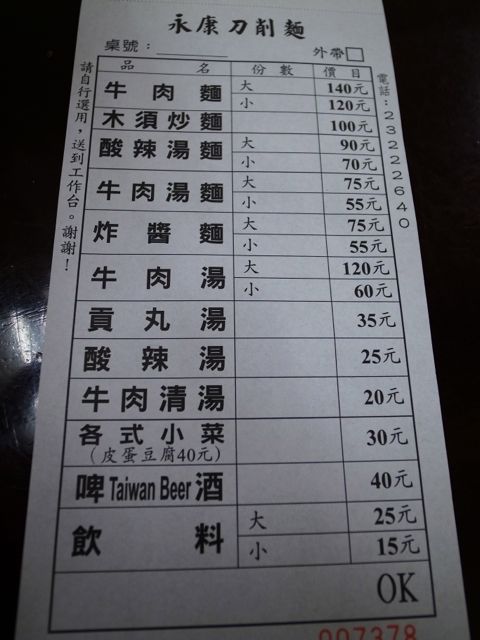 永康刀削麵
桌號：
外帶
品名 份數 價目
牛肉麵 大 140元
小 120元
木須炒麵 100元
酸辣湯麵 大 90元
小 70元
牛肉湯麵 大 75元
小 55元
炸醬麵 大 75元
小 55元
牛肉湯 大 120元
小 60元
貢丸湯 35元
酸辣湯 25元
牛肉清湯 20元
各式小菜 30元
(皮蛋豆腐40元)
啤Taiwan Beer酒 40元
飲料 大 25元
小 15元
OK
請自行選用，送到工作台。謝謝！
電話：23222640
007378